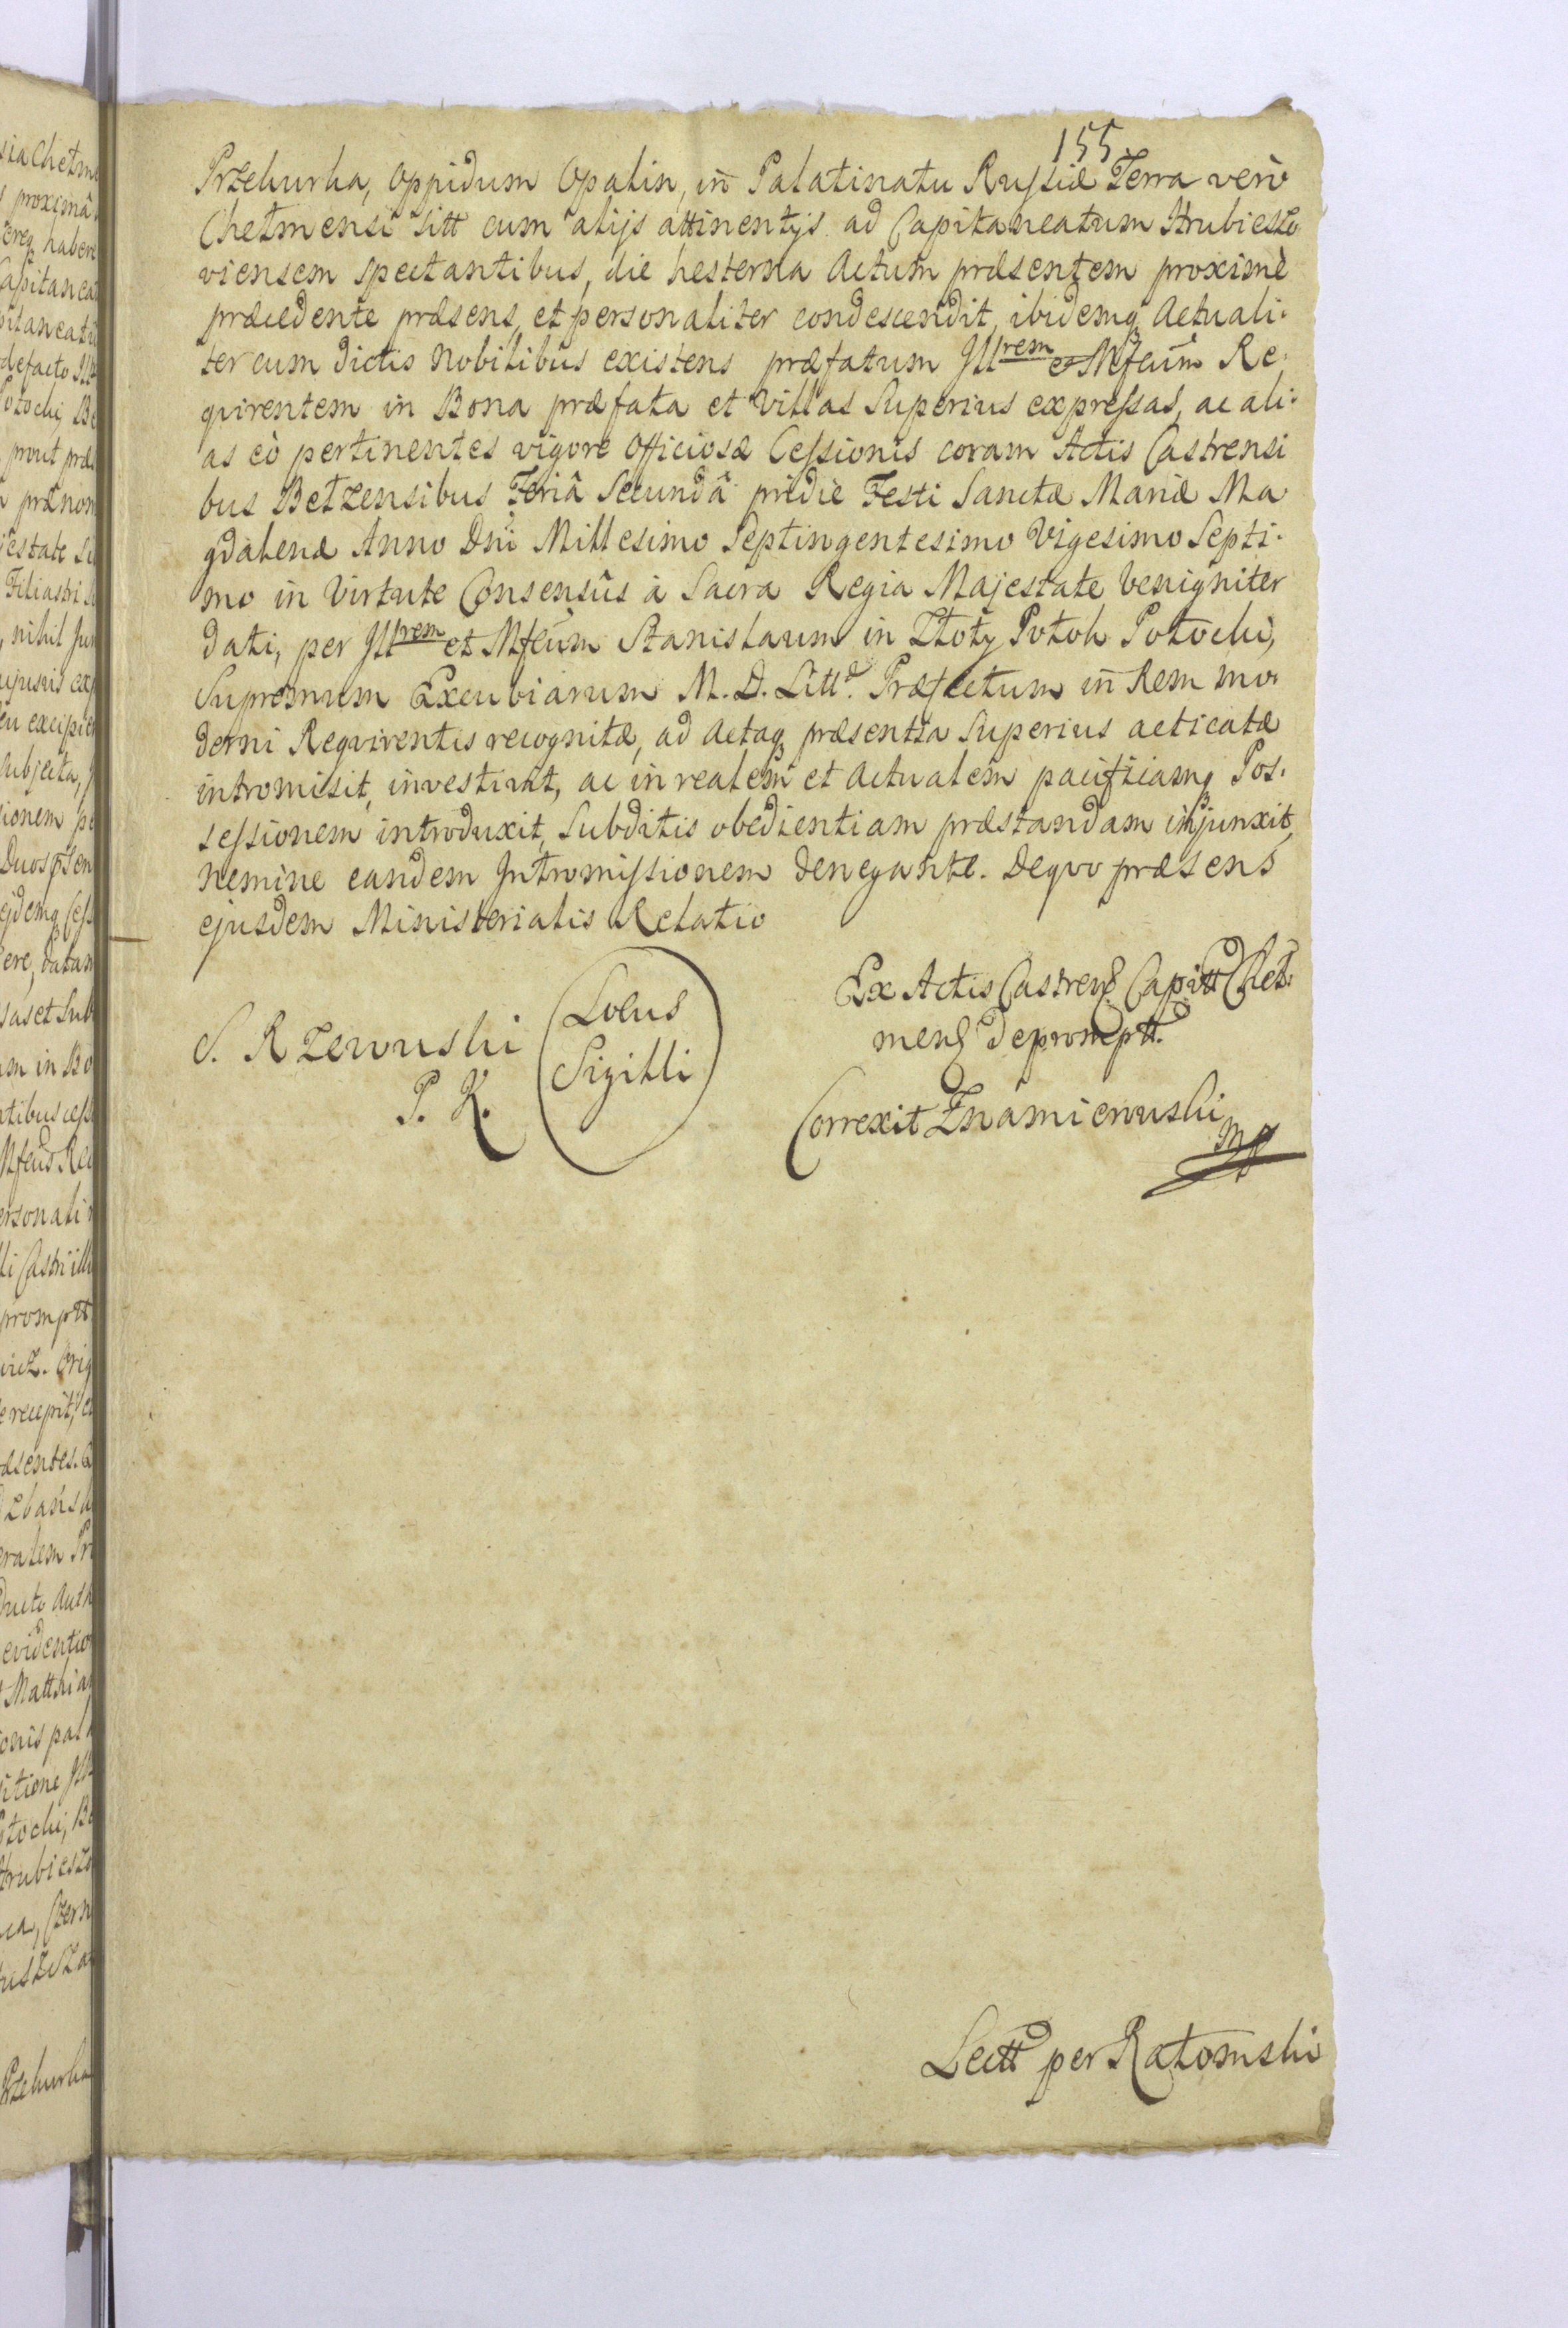 155
Przekurka, Oppidum Opalin, in Palatinatu Russiæ Terra verò
Chełmensi sitt cum alijs attinentijs ad Capitaneatum Hrubieszo-
viensem spectantibus, die hesterna Actum præsentem proximè
præcedente præsens, et personaliter condescendit, ibidemq Actuali-
ter cum dictis Nobilibus existens præfatum Jllrem et Mfcum Re-
qvirentem in Bona præfata et Villas Superius expressas, ac ali-
as eò pertinentes vigore Officiosæ Cessionis coram Actis Castrensi
bus Bełzensibus Feriâ Secundâ pridie Festi Sanctæ Mariæ Ma
gdalenæ Anno Dni Millesimo Septingentesimo Vigesimo Septi-
mo in Virtute Consensûs à Sacra Regia Majestate benigniter
dati, per Jllrem et Mfcum Stanislaum in Złoty Potok Potocki,
Supremum Excubiarum M. D. Litt. Præfectum in Rem mo-
derni Reqvirentis recognitæ, ad Actaq præsentia Superius acticatæ
intromisit, investivit, ac in realem et Actualem pacificamq Pos-
sessionem introduxit, Subditis obedientiam præstandam injunxit,
nemine eandem Jntromissionem denegante. Deqvo præsens
ejusdem Ministerialis Relatio
Ex Actis Castrens Capitt Cheł-
mens depromptt.
S. Rzewuski
P. K.
Locus
Sigilli
Correxit Znamierowski
mp
Lectt per Ratomski